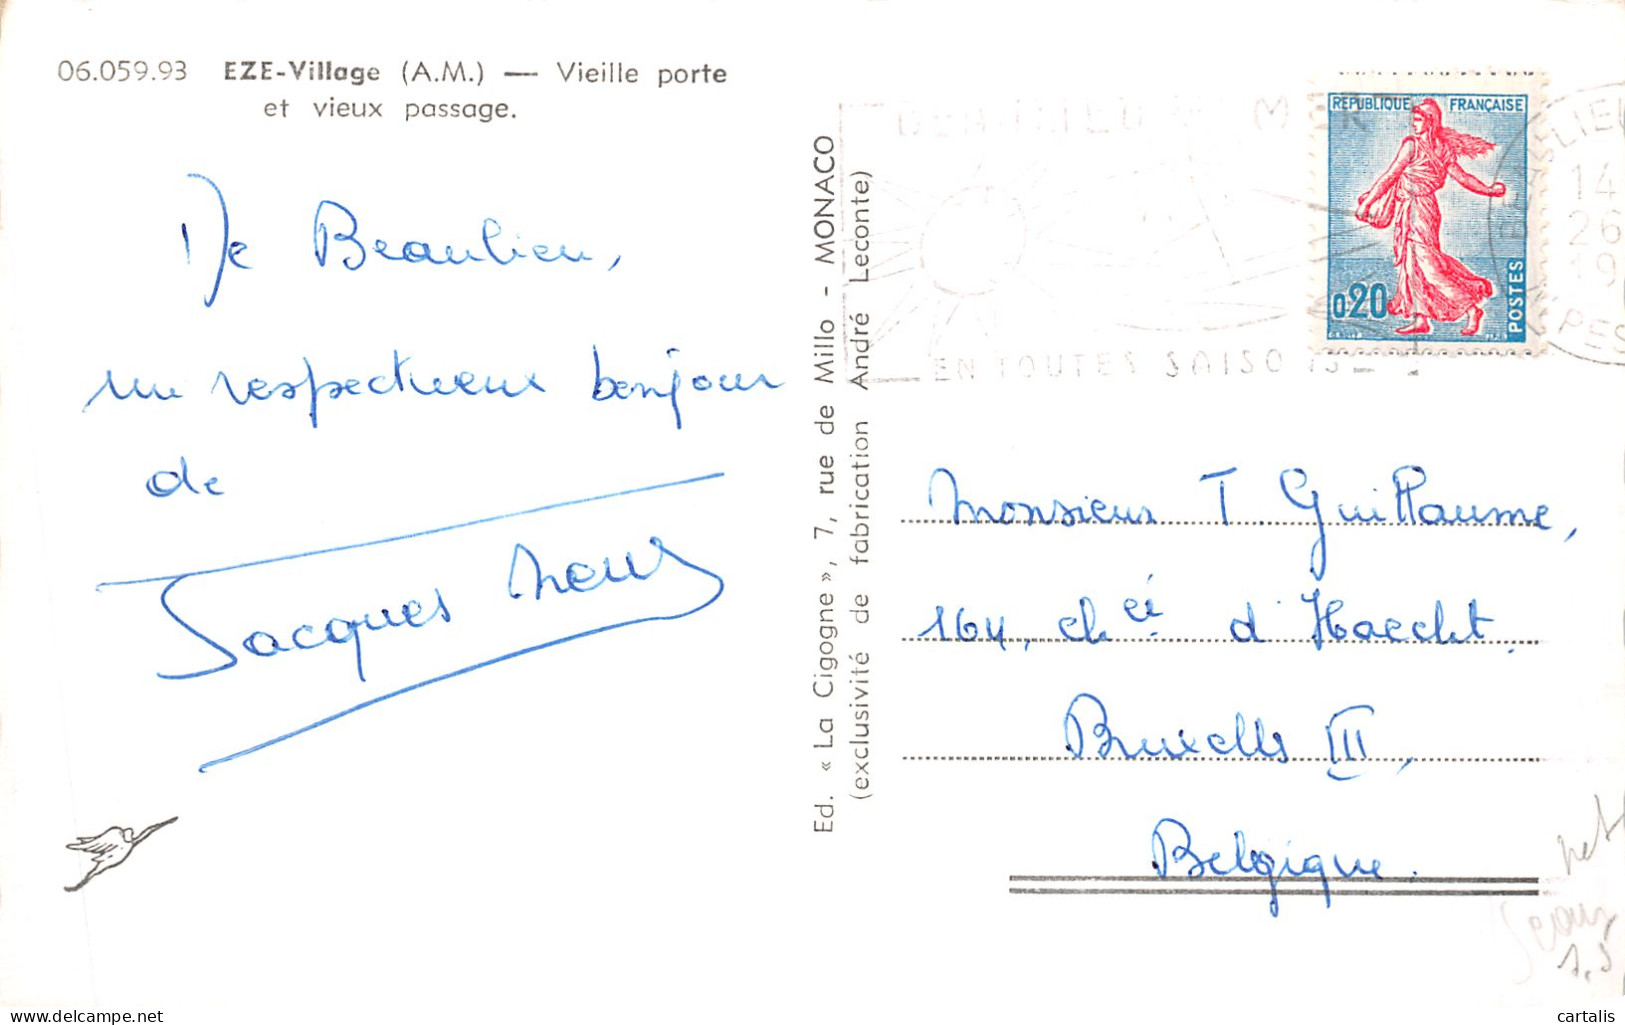 06.059.93 EZE-Village (A.M.) — Vieille porte
et vieux passage.
De Beaulieu,
un respectueux bonjour
de
Jacques
Ed. « La Cigogne », 7, rue de Millo - MONACO
(exclusivité de fabrication André Leconte)
MER
EN TOUTES SAISO
REPUBLIQUE FRANÇAISE
0,20
POSTES
14
26
19
Monsieur T. Guillaume,
164, ch ée d'Haecht
Bruxelles III,
Belgique.
cartalis